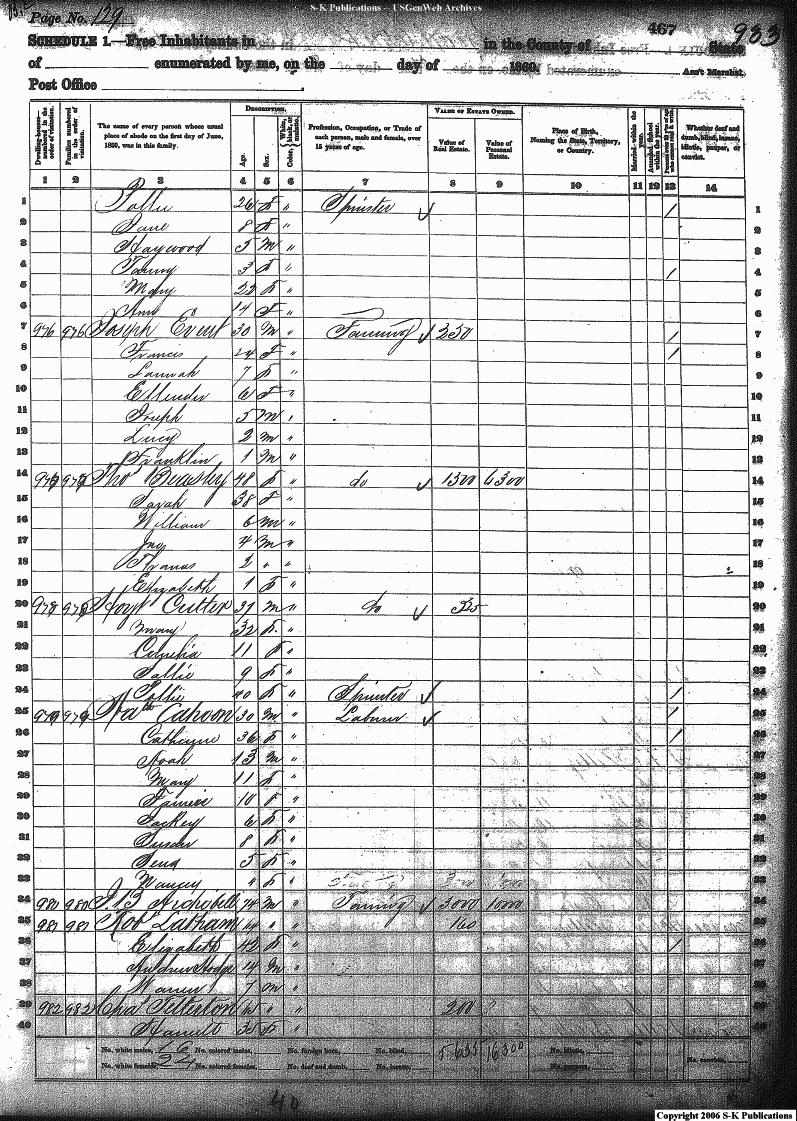 S-K Publications – USGenWeb Archives
Page No. 129
467
933
SCHEDULE 1.—Free Inhabitants in in the County of State
of enumerated by me, on the day of 1860. Ass't Marshal.
Post Office
Dwelling-houses—numbered in the order of visitation.
Families numbered in the order of visitation.
The name of every person whose usual place of abode on the first day of June, 1860, was in this family.
Description.
Age.
Sex.
Color, White, black, or mulatto.
Profession, Occupation, or Trade of each person, male and female, over 15 years of age.
Value of Estate Owned.
Value of Real Estate.
Value of Personal Estate.
Place of Birth, Naming the State, Territory, or Country.
Married within the year.
Attended School within the year.
Whether deaf and dumb, blind, insane, idiotic, pauper, or convict.
1 2 3 4 5 6 7 8 9 10 11 12 13 14
1 Pollie 26 F " Spinster / 1
2 Jane 8 F " 2
3 Haywood 5 M " 3
4 Fanny 3 F " / 4
5 Mary 22 F " 5
6 Ann 14 F " 6
7 976 976 Joseph Everit 30 M " Farming 250 / 7
8 Francis 24 F " / 8
9 Lannah 7 F " 9
10 Ellender 6 F " 10
11 Joseph 5 M " 11
12 Lucy 2 M " 12
13 Franklin 1 M " 13
14 977 977 Tho' Beasley 48 F " do 1300 6300 14
15 Sarah 38 F " 15
16 William 6 M " 16
17 Jno 4 M " 17
18 2 " " 18
19 Elizabeth 1 F " 19
20 978 978 Hoyt Cutler 31 M " do 325 20
21 Mary 32 F " 21
22 Cornelia 11 F " 22
23 Sallie 9 F " 23
24 Pollie 40 F " Spinster / 24
25 979 979 Cahoon 30 M " Laborer / 25
26 Catharine 36 F " / 26
27 Noah 13 M " 27
28 Mary 11 F " 28
29 10 F " 29
30 6 F " 30
31 Susan 8 F " 31
32 5 F " 32
33 Nancy " F " 33
34 980 980 J. B. Archobell 74 M " Farming 3000 10000 34
35 981 981 Rob' Latham 64 " " 160 35
36 Elizabeth 42 F " / 36
37 14 M " 37
38 Warren 7 M " 38
39 982 982 Cha' Tetterton 65 " " 200 39
40 Harriett 35 F " 40
No. white males, 16 No. colored males, No. foreign born, No. blind, 5,635 16300 No. idiotic,
No. white females, 24 No. colored females, No. deaf and dumb, No. insane, No. paupers, No. convicts,
40
Copyright 2006 S-K Publications